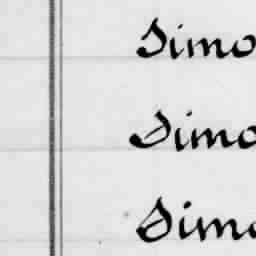 Simo
Simo
Simo